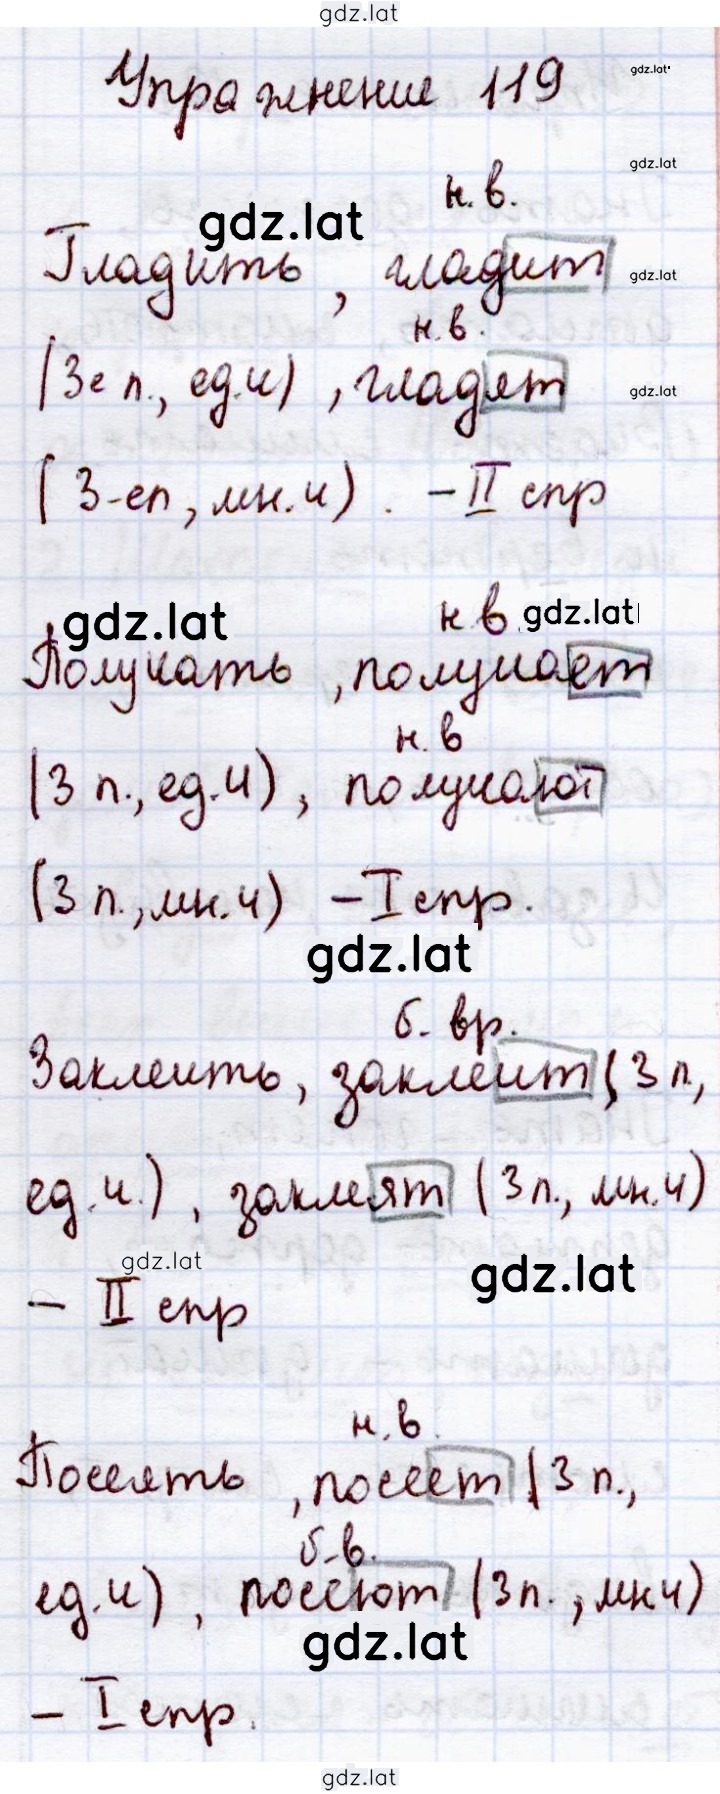 gdz.lat
Упражнение 119
gdz.lat
gdz.lat
н.в.
gdz.lat
Гладить, гладит
gdz.lat
н.в.
(3е л., ед.ч), гладят
gdz.lat
(3-ел, мн.ч). - II спр
gdz.lat
н.в.
gdz.lat
Получать, получает
н.в
(3 л., ед.ч), получают
(3 л., мн.ч) - I спр.
gdz.lat
б. вр.
Заклеить, заклеит (3 л,
ед.ч.), заклеят (3л., мн.ч)
gdz.lat
gdz.lat
- II спр
н.в.
Посеять, посеет (3 л.,
б.в.
ед.ч), посеют (3л., мн.ч)
gdz.lat
- I спр.
gdz.lat